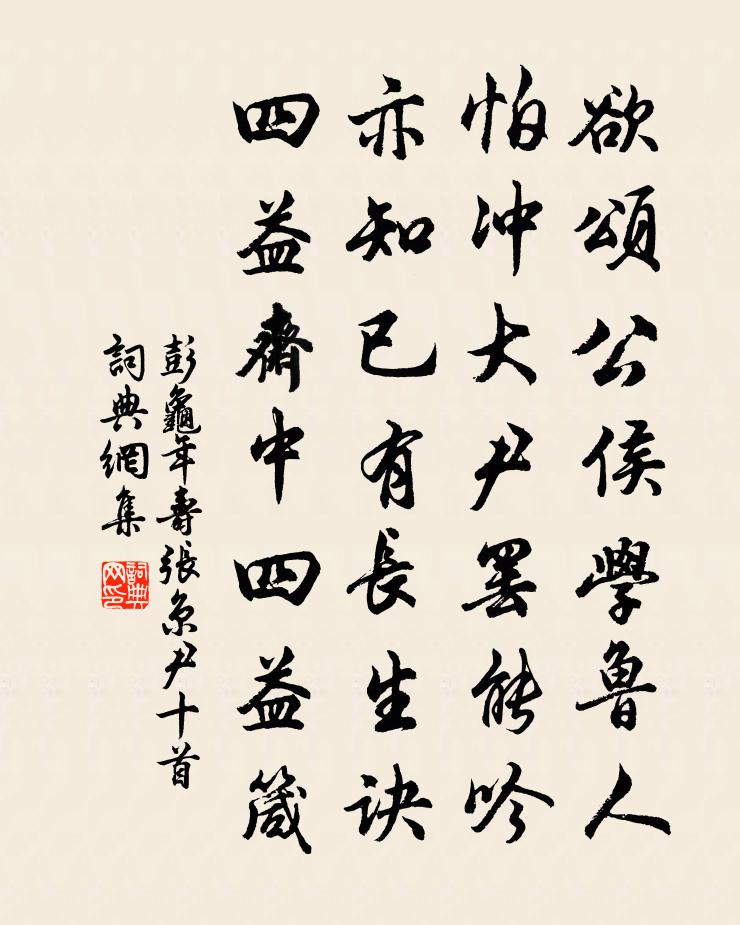 欲頌公侯學魯人
怕冲大尹罢能吟
亦知已有長生訣
四益齋中四益箴
彭龜年壽張京尹十首
詞典網集
詞典网印